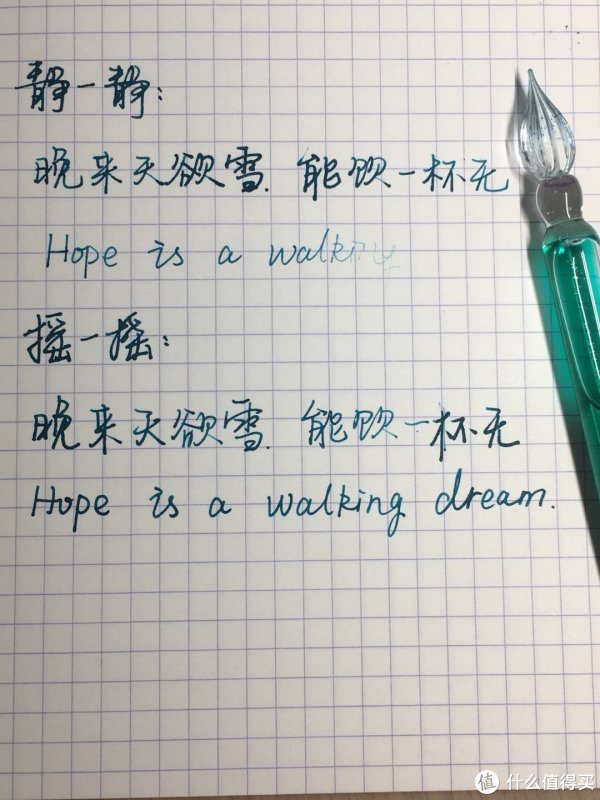 静一静：
晚来天欲雪. 能饮一杯无
Hope is a walking
摇一摇：
晚来天欲雪. 能饮一杯无
Hope is a walking dream.
值 什么值得买